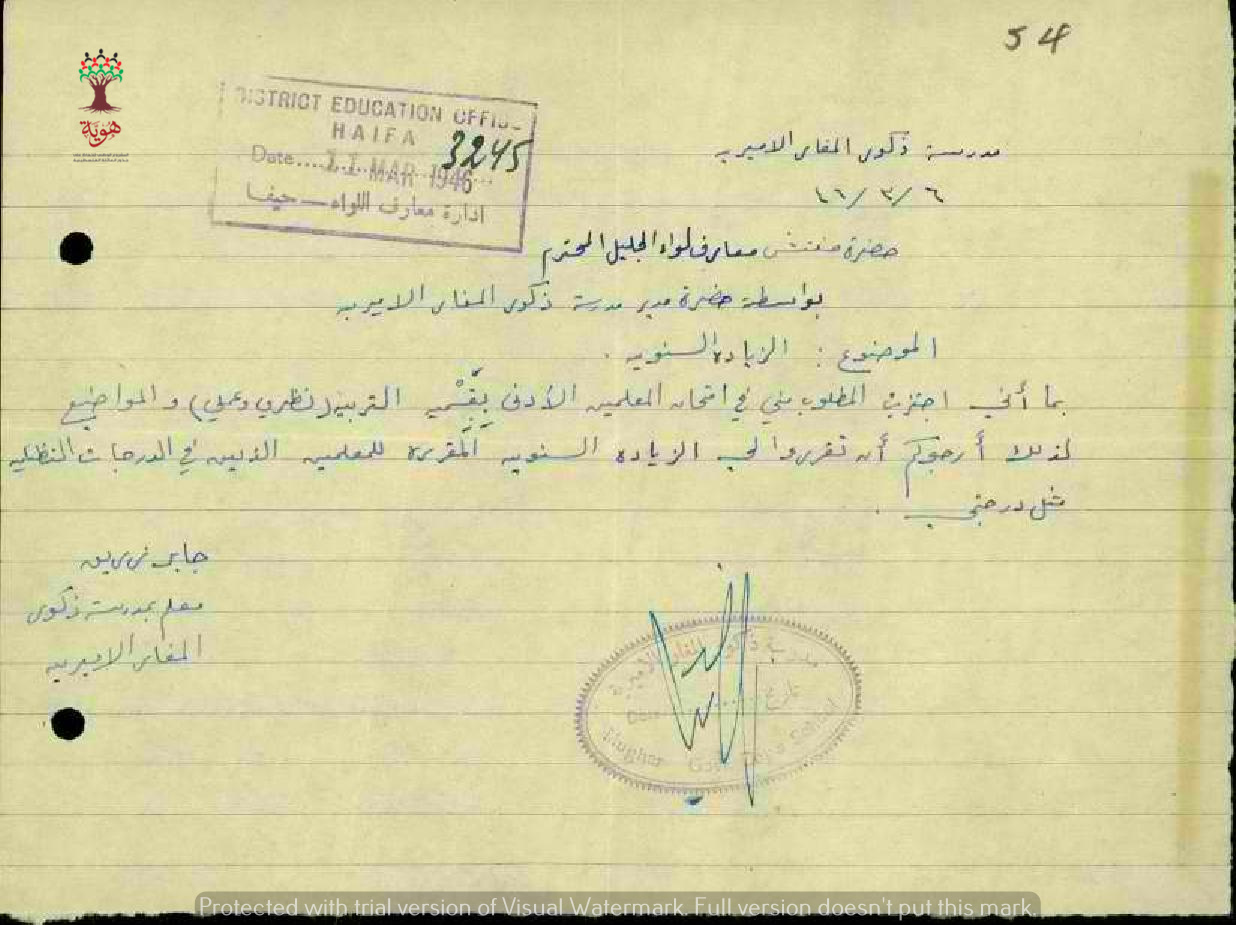 54
هوية
DISTRICT EDUCATION OFFICE
HAIFA
3245
Date.... 11 MAR 1946
ادارة معارف اللواء — حيفا
مدرسة ذكور المغار الاميرية
٤٦/٣/٦
حضرة مفتش معارف لواء الجليل المحترم
بواسطة حضرة مدير مدرسة ذكور المغار الاميرية
الموضوع : الزيادة السنوية .
بما أنني اجتزت المطلوب مني في امتحان المعلمين الأدنى بقسميه التربية (نظري وعملي) والمواضيع
لذلك أرجوكم أن تقرروا لي الزيادة السنوية المقررة للمعلمين الذين في الدرجات
مثل درجتي .
جابر
معلم بمدرسة ذكور
المغار الاميرية
مدرسة ذكور المغار الاميرية
تاريخ
Date
Mughar Govt Boys School
Protected with trial version of Visual Watermark. Full version doesn't put this mark.